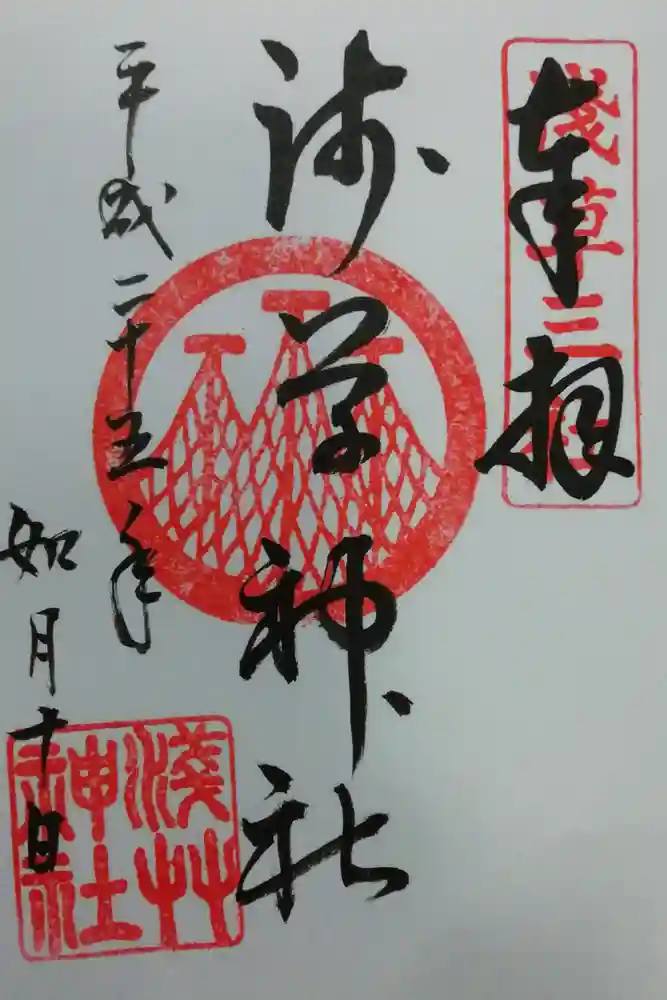 奉拝
淺草三社
浅草神社
平成二十五年
如月十日
淺艸
神社